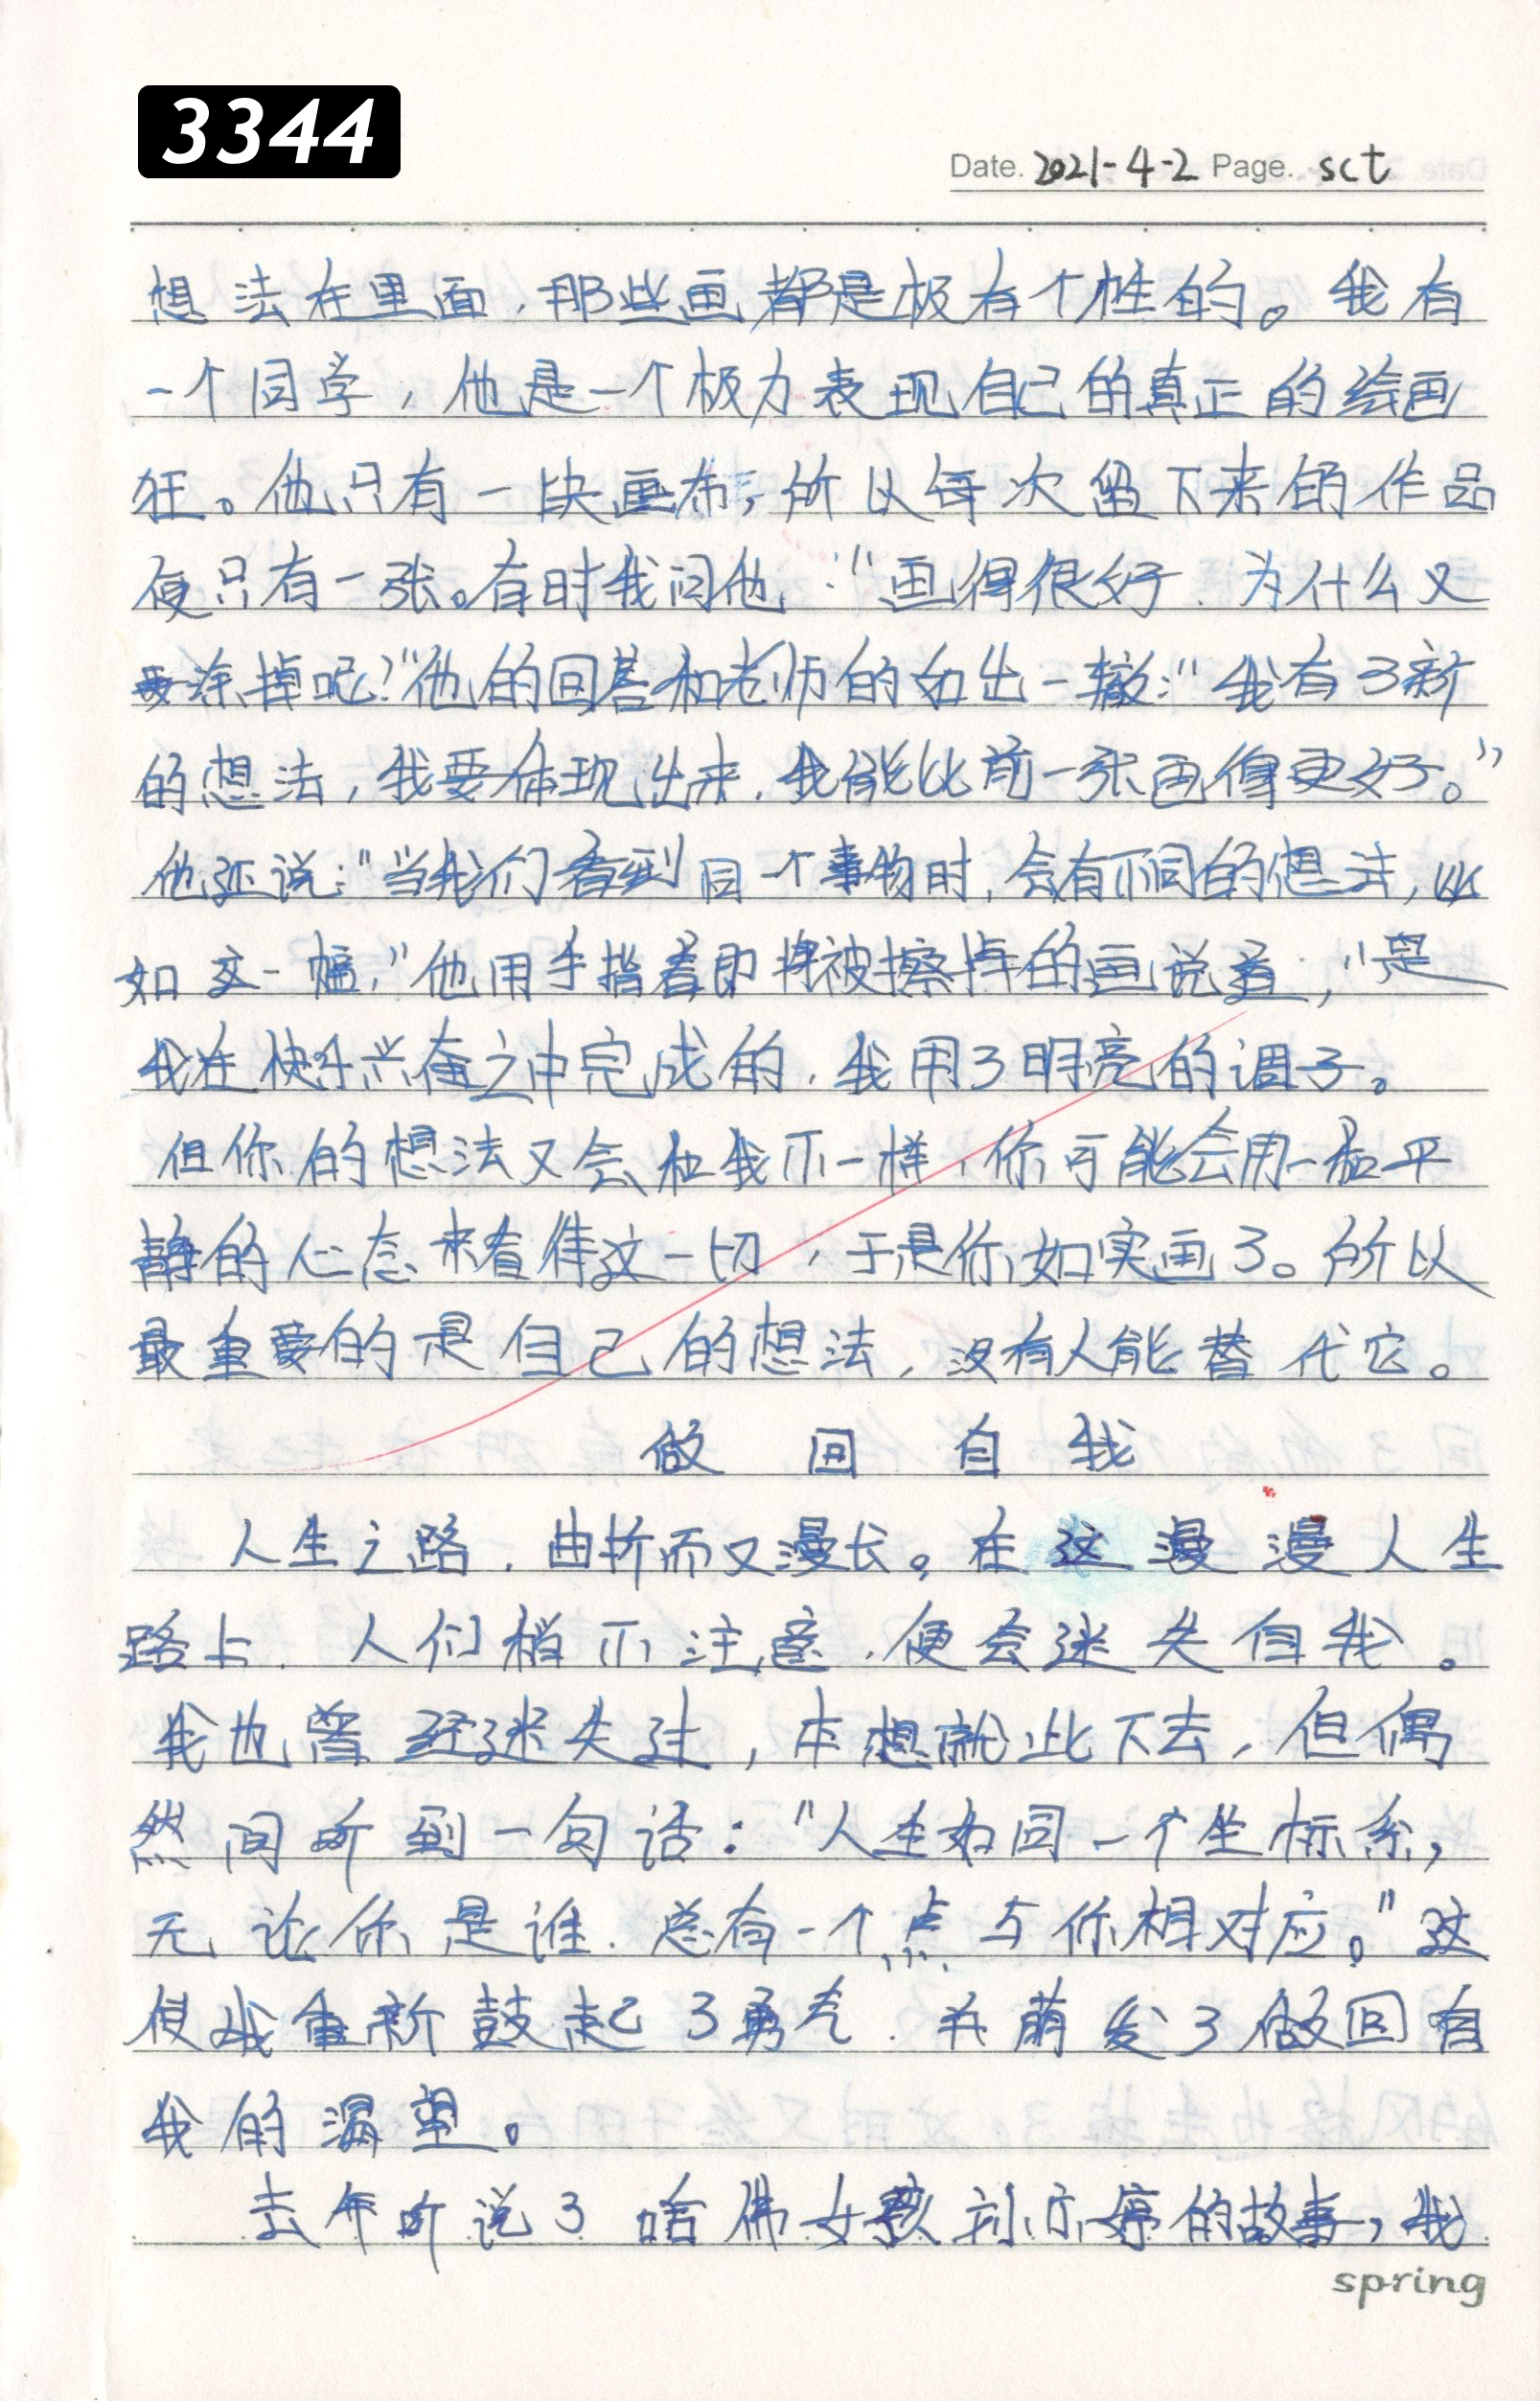 3344
Date. 2021-4-2 Page. sct
想法在里面，那些画都是极有个性的。我有
一个同学，他是一个极力表现自己的真正的绘画
狂。他只有一块画布，所以每次留下来的作品
便只有一张。有时我问他：“画得很好，为什么又
要涂掉呢？”他的回答和老师的如出一辙：“我有了新
的想法，我要体现出来，我能比前一张画得更好。”
他还说：“当我们看到同一个事物时，会有不同的想法，比
如这一幅，”他用手指着即将被擦掉的画说道，“是
我在快乐兴奋之中完成的，我用了明亮的调子。
但你的想法又会和我不一样，你可能会用一种平
静的心态来看待这一切，于是你如实画了。所以
最重要的是自己的想法，没有人能替代它。
做回自我
人生之路，曲折而又漫长。在这漫漫人生
路上，人们稍不注意，便会迷失自我。
我也曾经迷失过，本想就此下去，但偶
然间听到一句话：“人生如同一个坐标系，
无论你是谁，总有一个点与你相对应。”这
使我重新鼓起了勇气，并萌发了做回自
我的渴望。
去年听说了哈佛女孩刘亦婷的故事，我
spring